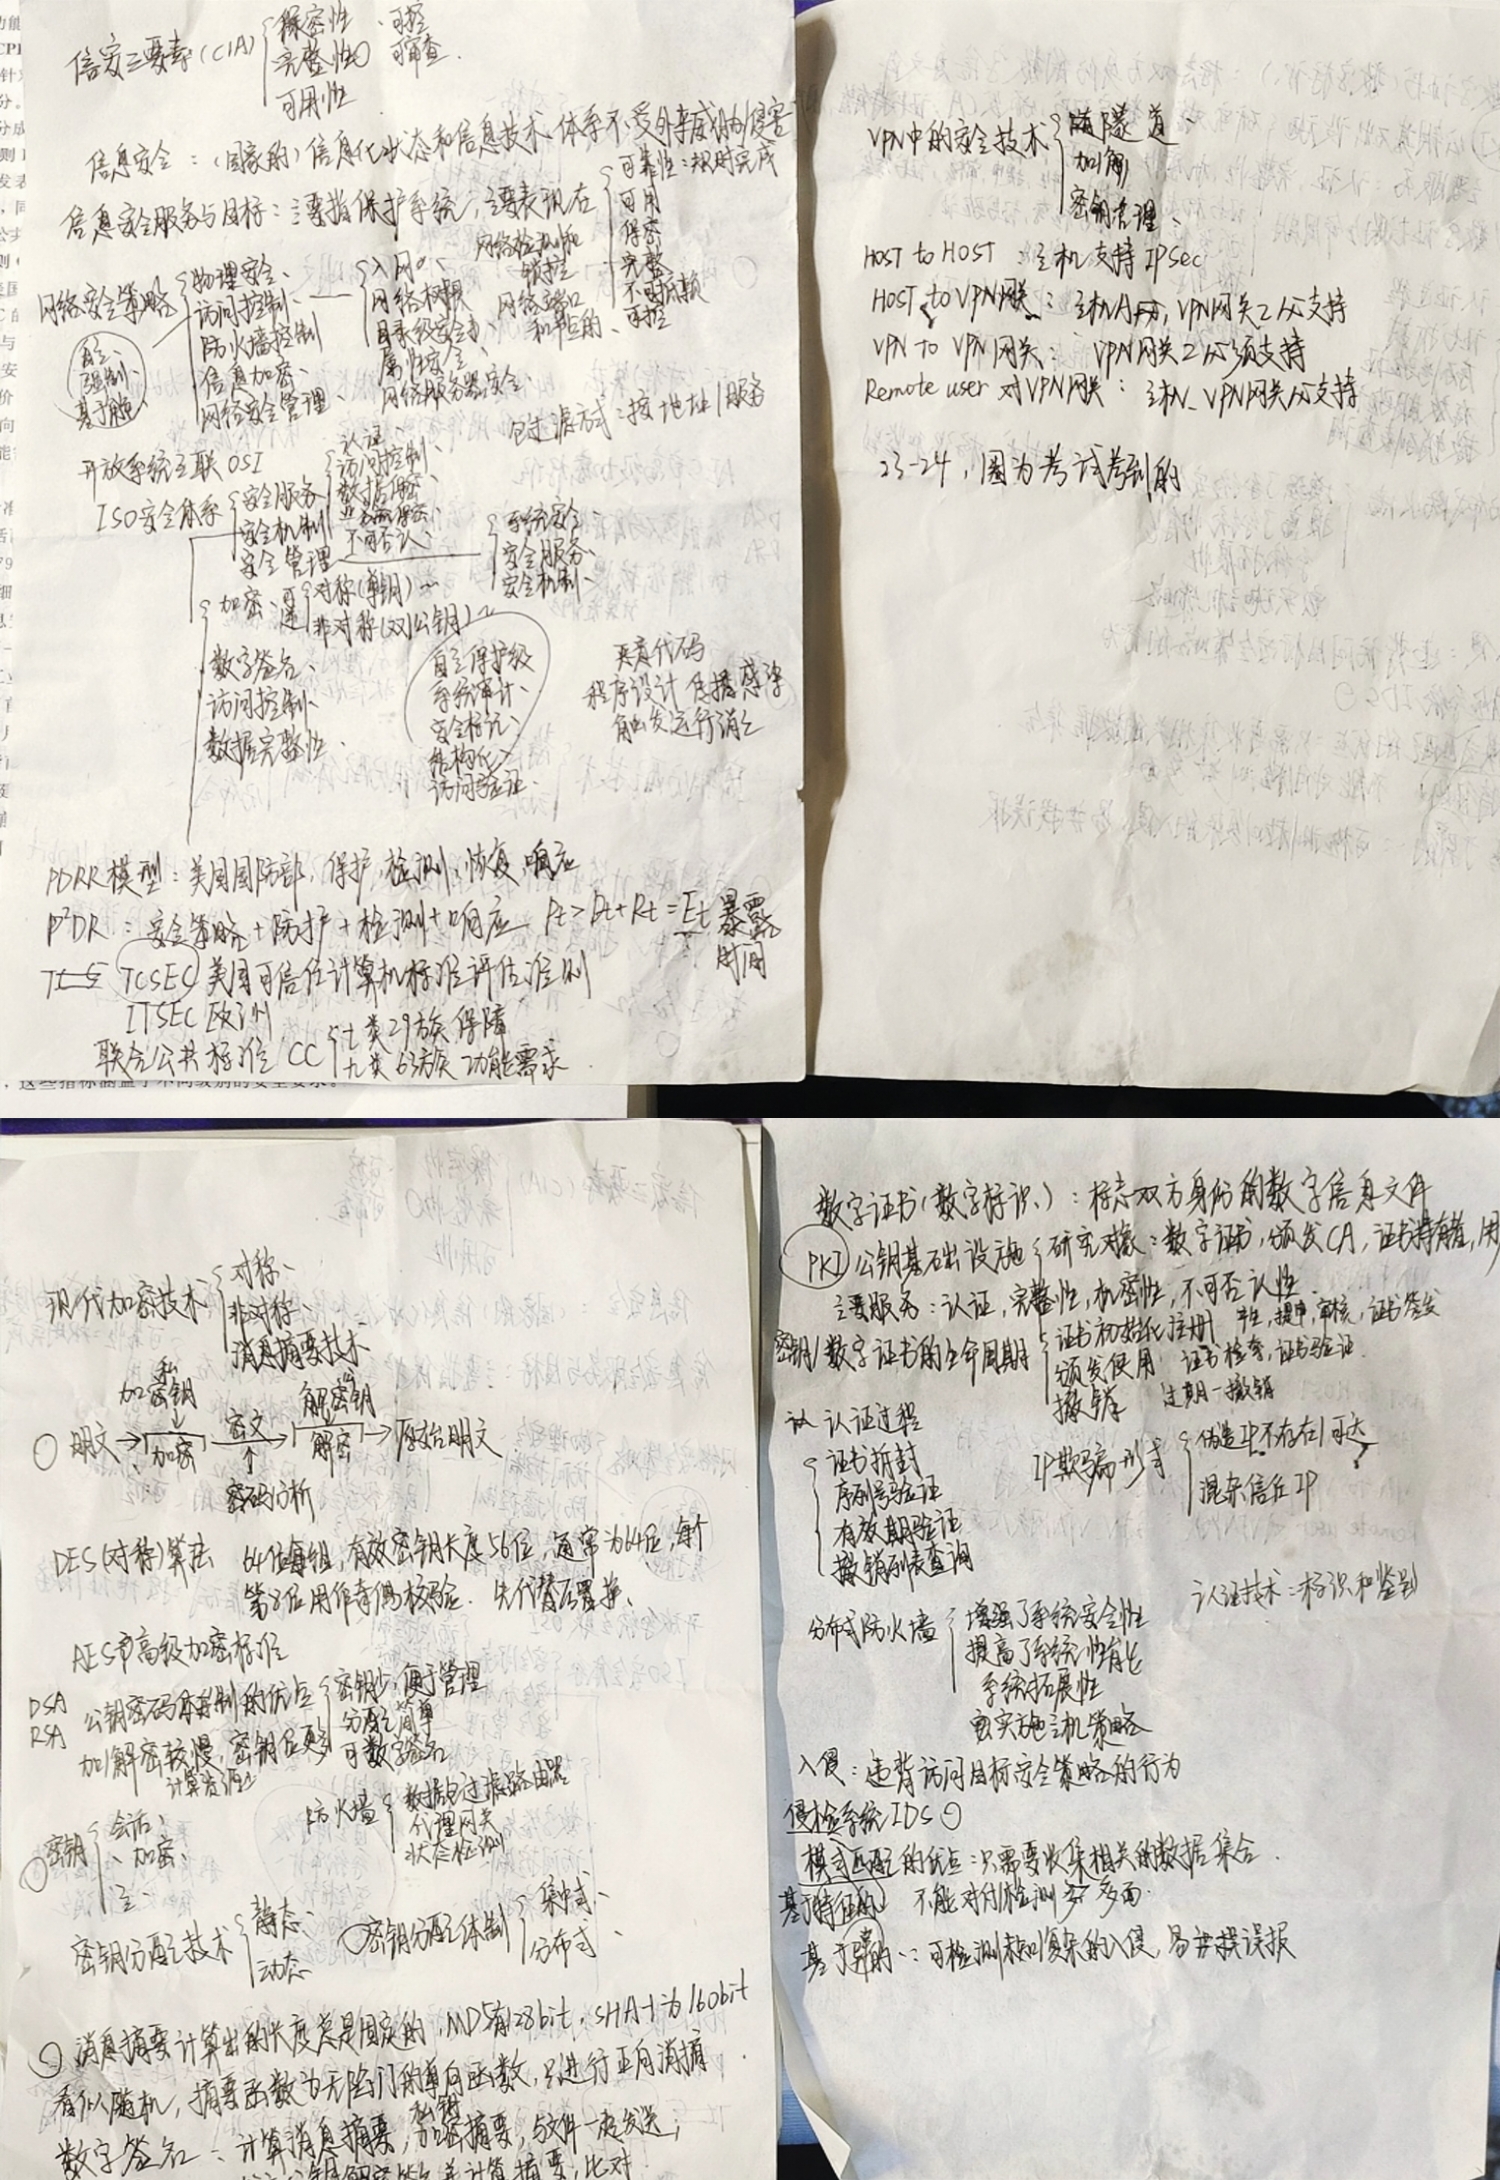 信安三要素(CIA) 保密性、可控
完整性 可审查.
可用性
信息安全：(国家的)信息化状态和信息技术体系不受外来威胁/侵害
信息安全服务与目标：主要指保护系统，主要表现在
可靠性：规时完成
可用
保密
完整
不可抵赖
可控
网络安全策略
物理安全、
访问控制、
防火墙控制
信息加密、
网络安全管理、
自主、
强制、
基于角色
入网、
网络权限
目录级安全、
属性安全、
网络服务器安全、
网络检测和
锁控
网络端口
和节点的、
包过滤方式：按地址/服务
开放系统互联OSI
ISO安全体系
安全服务
安全机制
安全管理
认证、
访问控制、
数据保密
不可否认、
系统安全、
安全服务、
安全机制、
加密、可逆
对称(单钥)
非对称(双/公钥)
数字签名、
访问控制、
数据完整性、
自主保护级
系统审计、
安全标记、
结构化、
访问验证、
恶意代码
程序设计 传播 感染
触发运行 消亡
PDRR模型：美国国防部，保护，检测，恢复，响应
P²DR：安全策略+防护+检测+响应 Pt>Dt+Rt=Et 暴露
时间
TCSEC 美国可信任计算机标准评估准则
ITSEC 欧洲
联合公共标准CC
七类29族 保障
九类63族 功能需求.
VPN中的安全技术
隧道、
加/解
密钥管理、
HOST to HOST：主机支持IPSec
HOST to VPN网关：主机, VPN网关2必支持
VPN to VPN网关： VPN网关2必须支持
Remote user 对VPN网关：主机、VPN网关必支持
23-24，圈为考试考到的
现代加密技术
对称、
非对称、
消息摘要技术
私
加密钥
解密钥
明文→加密→密文→解密→原始明文
密码分析
DES(对称)算法 64位每组，有效密钥长度56位，通常为64位，每个
第8位用作奇偶校验. 先代替后置换、
AES高级加密标准
DSA
RSA
公钥密码体制的优点
密钥少，便于管理
分配简单
可数字签名
加/解密较慢，密钥位更多
防火墙
数据包过滤路由器
代理网关
状态检测
密钥
会话、
加密、
主、
密钥分配技术
静态、
动态
密钥分配体制
集中式、
分布式、
消息摘要计算出的长度总是固定的，MD5有128bit，SHA-1为160bit
看似随机，摘要函数为无陷门的单向函数，只进行正向消摘
私钥
数字签名：计算消息摘要，加密摘要，与文件一起发送；
数字证书(数字标识、)：标志双方身份的数字信息文件
PKI 公钥基础设施 研究对象：数字证书，颁发CA，证书持有者，用
主要服务：认证，完整性，机密性，不可否认性
密钥/数字证书的生命周期
证书初始化注册 产生，提申，审核，证书签发
颁发使用 证书检索，证书验证.
撤销 过期－撤销
认证过程
证书拆封
序列号验证
有效期验证
撤销列表查询
IP欺骗形式
伪造IP不存在/可达
混杂信任IP
认证技术：标识和鉴别
分布式防火墙
增强了系统安全性
提高了系统性能
系统拓展性
实施主机策略
入侵：违背访问目标安全策略的行为
侵检系统IDS
模式匹配的优点：只需要收集相关的数据集合.
基于特征的 不能对付检测 多面.
基于异常的：可检测未知/复杂的入侵，易误报